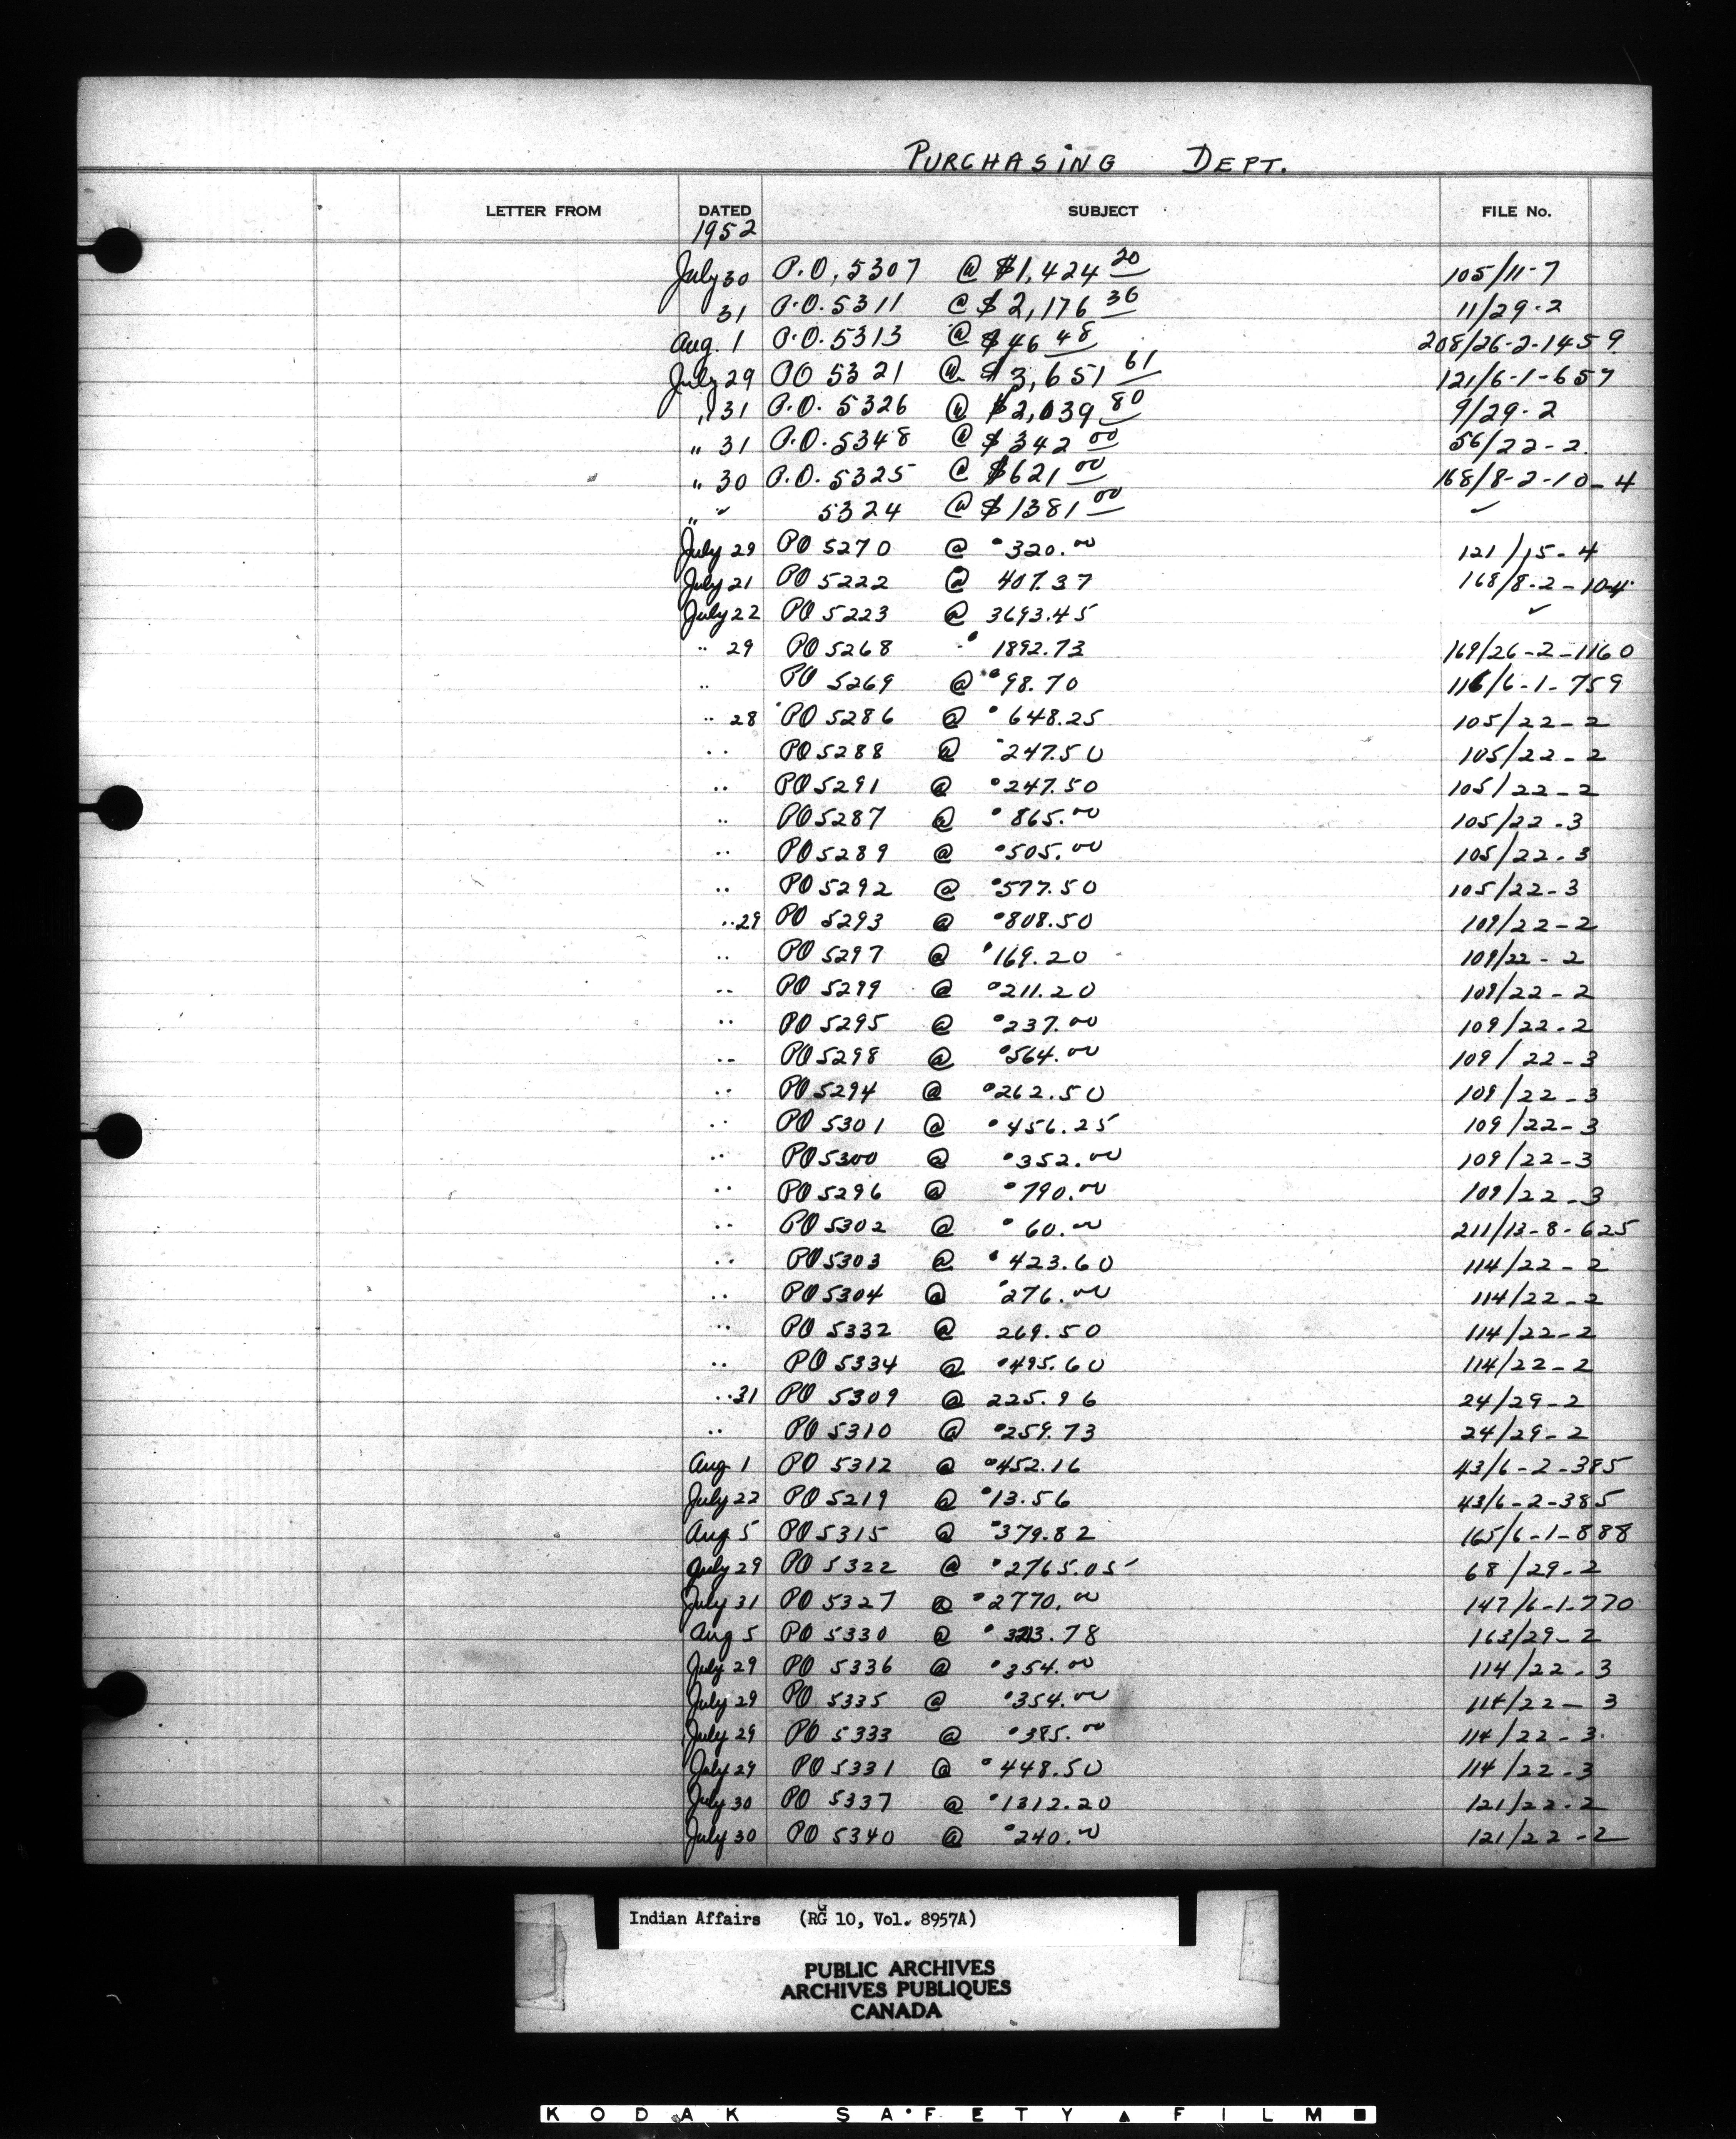 PURCHASING DEPT.
LETTER FROM DATED SUBJECT FILE No.
1952
July 30 P.O. 5307 @ $1,424 20 105/11-7
31 P.O. 5311 @ $2,176 36 11/29-2
Aug. 1 P.O. 5313 @ $46 48 208/26-2-1459
July 29 PO 5321 @ $3,651 61 121/6-1-657
" 31 P.O. 5326 @ $2,039 80 9/29-2
" 31 P.O. 5348 @ $342 00 56/22-2
" 30 P.O. 5325 @ $621 00 168/8-2-10-4
" ✓ 5324 @ $1381 00 ✓
July 29 PO 5270 @ $320.00 121/15-4
July 21 PO 5222 @ 407.37 168/8-2-10-4
July 22 PO 5223 @ 3693.45 ✓
" 29 PO 5268 1892.73 169/26-2-1160
" PO 5269 @ 98.70 116/6-1-759
" 28 PO 5286 @ 648.25 105/22-2
" PO 5288 @ 247.50 105/22-2
" PO 5291 @ 247.50 105/22-2
" PO 5287 @ 865.00 105/22-3
" PO 5289 @ 505.00 105/22-3
" PO 5292 @ 577.50 105/22-3
" 29 PO 5293 @ 808.50 109/22-2
" PO 5297 @ 169.20 109/22-2
" PO 5299 @ 211.20 109/22-2
" PO 5295 @ 237.00 109/22-2
" PO 5298 @ 564.00 109/22-3
" PO 5294 @ 262.50 109/22-3
" PO 5301 @ 456.25 109/22-3
" PO 5300 @ 352.00 109/22-3
" PO 5296 @ 790.00 109/22-3
" PO 5302 @ 60.00 211/13-8-625
" PO 5303 @ 423.60 114/22-2
" PO 5304 @ 276.00 114/22-2
" PO 5332 @ 269.50 114/22-2
" PO 5334 @ 495.60 114/22-2
" 31 PO 5309 @ 225.96 24/29-2
" PO 5310 @ 259.73 24/29-2
Aug 1 PO 5312 @ 452.16 43/6-2-385
July 22 PO 5219 @ 13.56 43/6-2-385
Aug 5 PO 5315 @ 379.82 165/6-1-888
July 29 PO 5322 @ 2765.05 68/29-2
July 31 PO 5327 @ 2770.00 147/6-1-770
Aug 5 PO 5330 @ 163/29-2
July 29 PO 5336 @ 354.00 114/22-3
July 29 PO 5335 @ 354.00 114/22-3
July 29 PO 5333 @ 385.00 114/22-3
July 29 PO 5331 @ 448.50 114/22-3
July 30 PO 5337 @ 1312.20 121/22-2
July 30 PO 5340 @ 240.00 121/22-2
Indian Affairs (RG 10, Vol. 8957A)
PUBLIC ARCHIVES
ARCHIVES PUBLIQUES
CANADA
KODAK SAFETY FILM